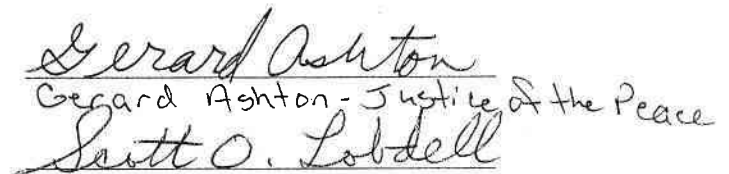 Gerard Ashton
Gerard Ashton - Justice of the Peace
Scott O. Lobdell